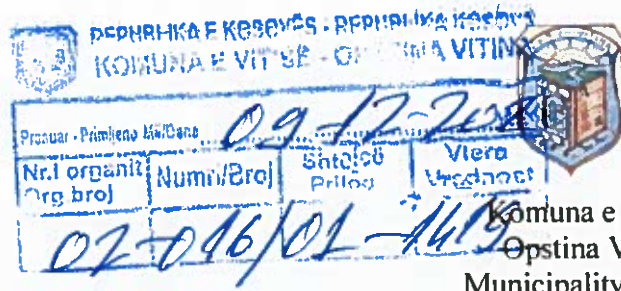 REPUBLIKA E KOSOVËS - REPUBLIKA KOSOVA
KOMUNA E VITISË - OPŠTINA VITINA
Pranuar - Primljeno Më/Dana 09-12-20
Nr.i organit Numri/Broj Shtojcë Vlera
Org broj Prilog Vrednost
02-016/01-
Komuna e
Opstina V
Municipality